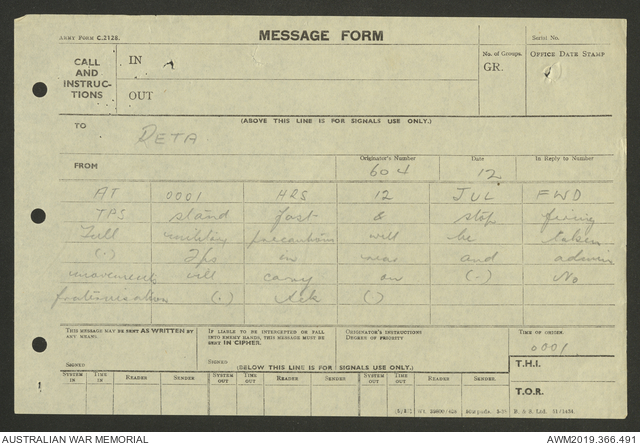 ARMY FORM C.2128.
MESSAGE FORM
Serial No.
CALL AND INSTRUC- TIONS
IN
OUT
No. of Groups.
GR.
OFFICE DATE STAMP
(ABOVE THIS LINE IS FOR SIGNALS USE ONLY.)
TO
DETA
FROM
Originator's Number
604
Date
12
In Reply to Number
AT 0001 HRS 12 JUL FWD
TPS stand fast & stop firing
Full military precautions will be taken
(.) Tps in rear and admin
movements will carry on (.) No
fraternisation (.) Ack ()
THIS MESSAGE MAY BE SENT AS WRITTEN BY ANY MEANS.
SIGNED
IF LIABLE TO BE INTERCEPTED OR FALL INTO ENEMY HANDS, THIS MESSAGE MUST BE SENT IN CIPHER.
SIGNED
ORIGINATOR'S INSTRUCTIONS
DEGREE OF PRIORITY
TIME OF ORIGIN.
0001
(BELOW THIS LINE IS FOR SIGNALS USE ONLY.)
T.H.I.
T.O.R.
SYSTEM IN
TIME IN
READER
SENDER
SYSTEM OUT
TIME OUT
READER
SENDER
SYSTEM OUT
TIME OUT
READER
SENDER
AUSTRALIAN WAR MEMORIAL
AWM2019.366.491